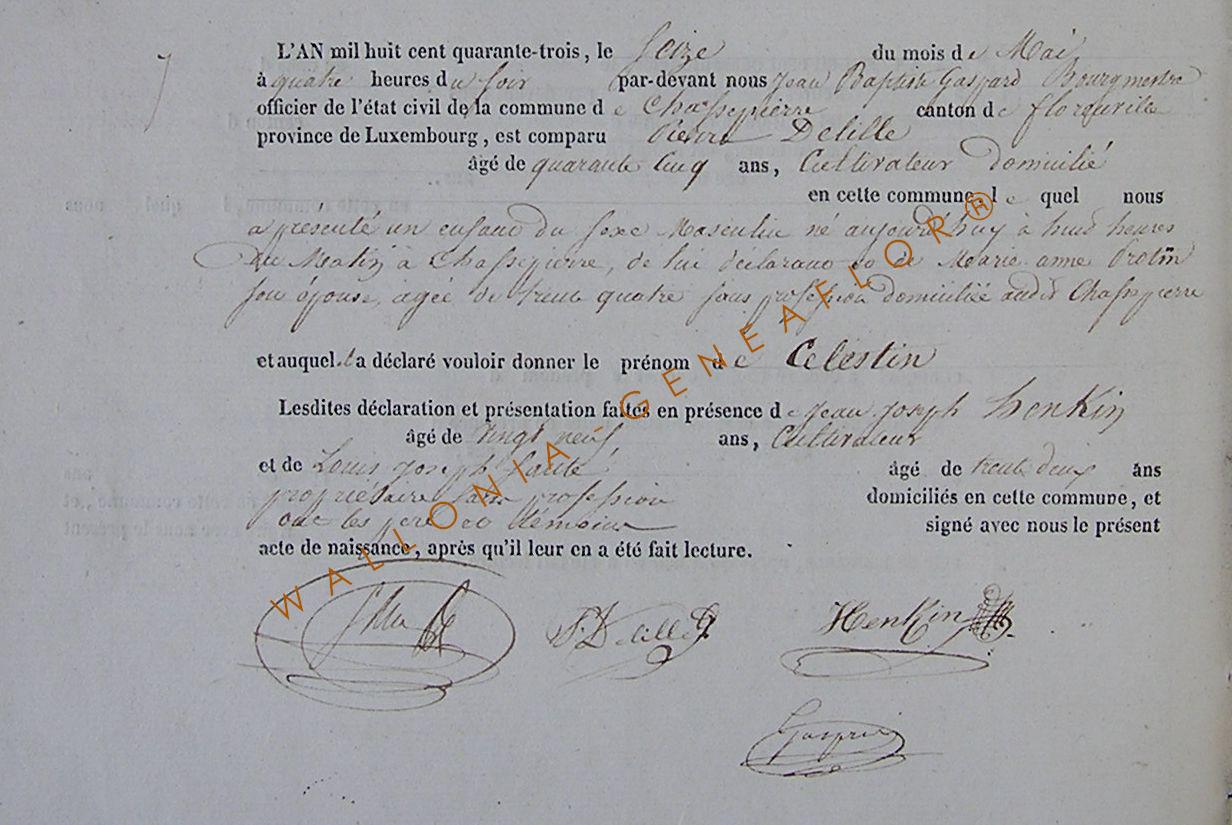 L'AN mil huit cent quarante-trois, le Seize du mois de Mai
à quatre heures du soir par-devant nous Jean Baptiste Gaspard Bourgmestre
officier de l'état civil de la commune de Chassepierre canton de florenville
province de Luxembourg, est comparu Pierre Delille
âgé de quarante Cinq ans, Cultivateur domicilié
en cette commune, le quel nous
a présenté un enfant du sexe Masculin né aujourd'huy à huit heures
du Matin à Chassepierre, de lui déclarant et de Marie anne
son épouse, agée de trente quatre sans profession domiciliée audit Chassepierre
et auquel il a déclaré vouloir donner le prénom de Célestin
Lesdites déclaration et présentation faites en présence de Jean Joseph Henkin
âgé de vingt neuf ans, Cultivateur
et de Louis Joseph âgé de trente deux ans
propriétaire sans profession domiciliés en cette commune, et
ont les père et témoins signé avec nous le présent
acte de naissance, après qu'il leur en a été fait lecture.
P. Delille Henkin
WALLONIA GENEAFLOR®